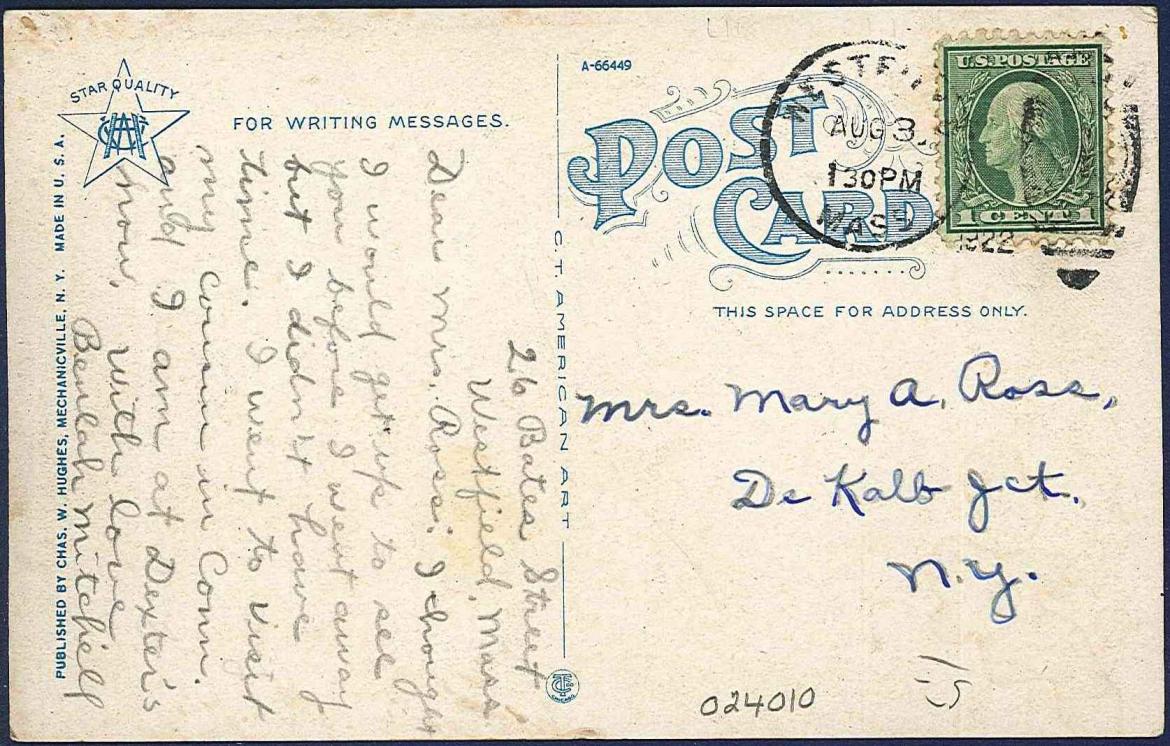 STAR QUALITY
CWH
FOR WRITING MESSAGES.
A-66449
POST
CARD
WESTFI
AUG 3
130PM
MASS
1922
U.S. POSTAGE
1 CENT 1
THIS SPACE FOR ADDRESS ONLY.
PUBLISHED BY CHAS. W. HUGHES, MECHANICVILLE, N. Y. MADE IN U. S. A.
C.T. AMERICAN ART
CHICAGO
26 Bates Street
Westfield, Mass.
Dear Mrs. Ross: I thought
I would get up to see
you before I went away
but I didn't have
time. I went to visit
my cousin in Conn.
and I am at Dexter's
now. With love
Beulah Mitchell
Mrs. Mary A. Ross,
De Kalb Jct.
N.Y.
024010
15